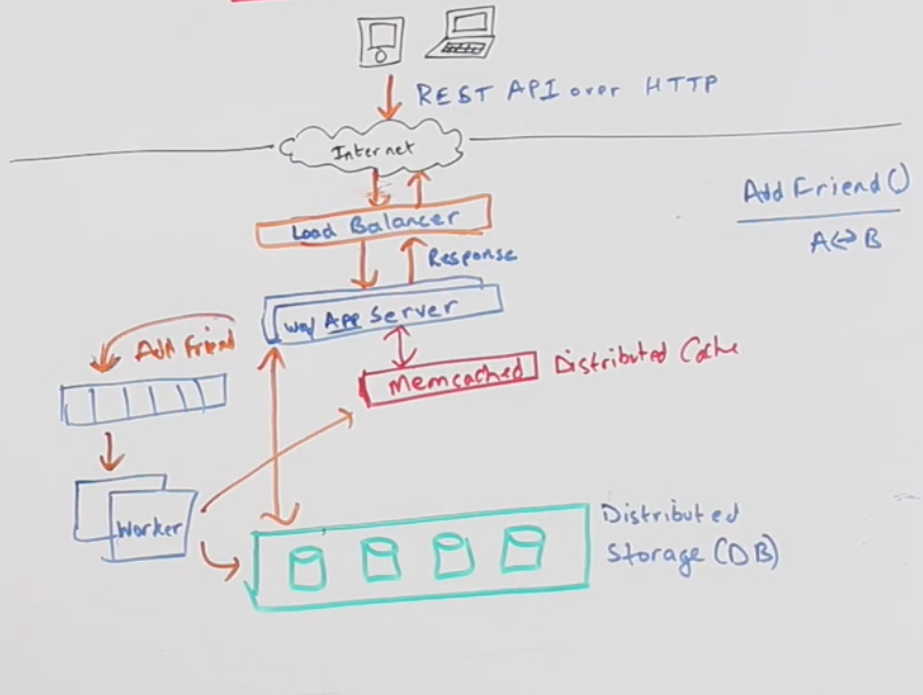 REST API over HTTP
Internet
Load Balancer
Response
Add Friend()
A↔B
App Server
Add Friend
Memcached
Distributed Cache
Worker
Distributed
Storage (DB)